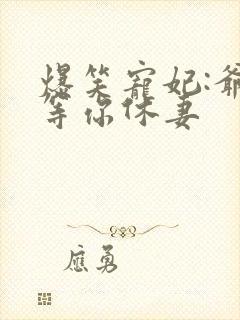 爆笑寵妃:爺
等你休妻
應勇